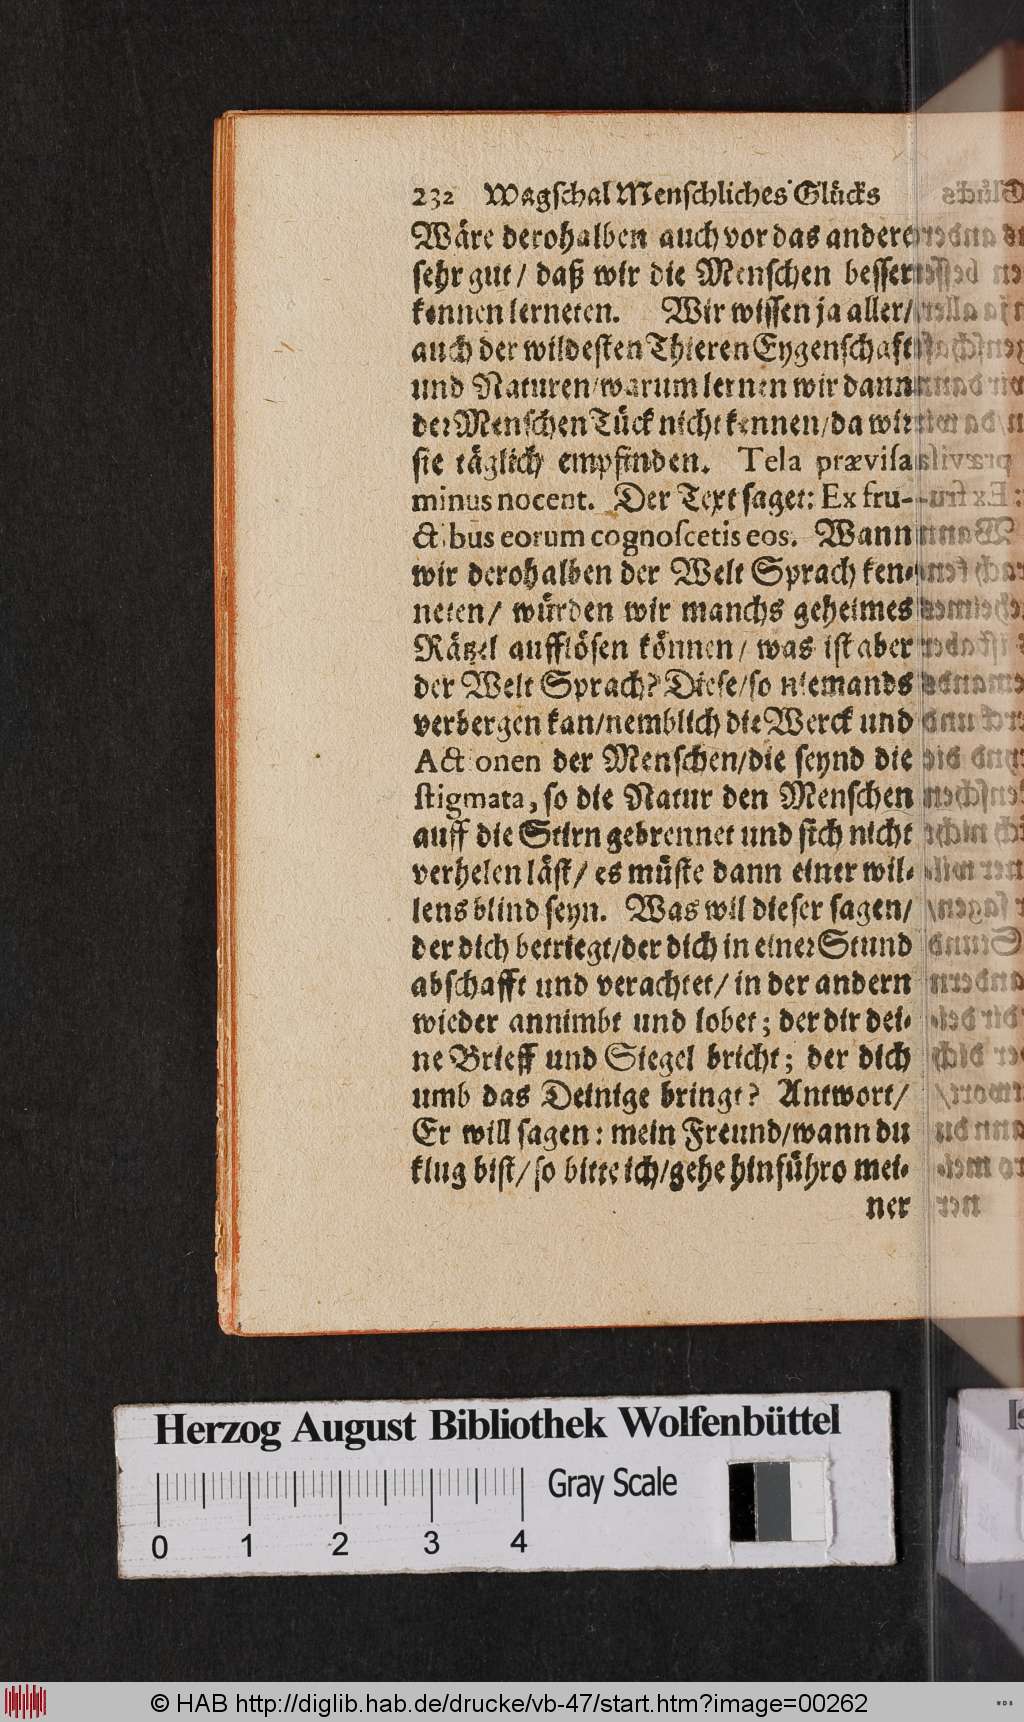 232 Wagſchal Menſchliches Glücks
Wäre derohalben auch vor das andere
ſehr gut/ daß wir die Menſchen beſſer
kennen lerneten. Wir wiſſen ja aller/
auch der wildeſten Thieren Eygenſchaft
und Naturen/warum lernen wir dann
der Menſchen Tück nicht kennen/da wir
ſie täglich empfinden. Tela præviſa
minus nocent. Der Text ſaget: Ex fru-
ctibus eorum cognoſcetis eos. Wann
wir derohalben der Welt Sprach ken-
neten/ würden wir manchs geheimes
Rätzel aufflöſen können/ was iſt aber
der Welt Sprach? Dieſe/ſo niemands
verbergen kan/nemblich die Werck und
Actionen der Menſchen/die ſeynd die
ſtigmata, ſo die Natur den Menſchen
auff die Stirn gebrennet und ſich nicht
verhelen läſt/ es müſte dann einer wil-
lens blind ſeyn. Was wil dieſer ſagen/
der dich betriegt/der dich in einer Stund
abſchafft und verachtet/ in der andern
wieder annimbt und lobet; der dir dei-
ne Brieff und Siegel bricht; der dich
umb das Deinige bringt? Antwort/
Er will ſagen: mein Freund/wann du
klug biſt/ſo bitte ich/gehe hinführo mei-
ner
Herzog August Bibliothek Wolfenbüttel
Gray Scale
0 1 2 3 4
© HAB http://diglib.hab.de/drucke/vb-47/start.htm?image=00262
WDB